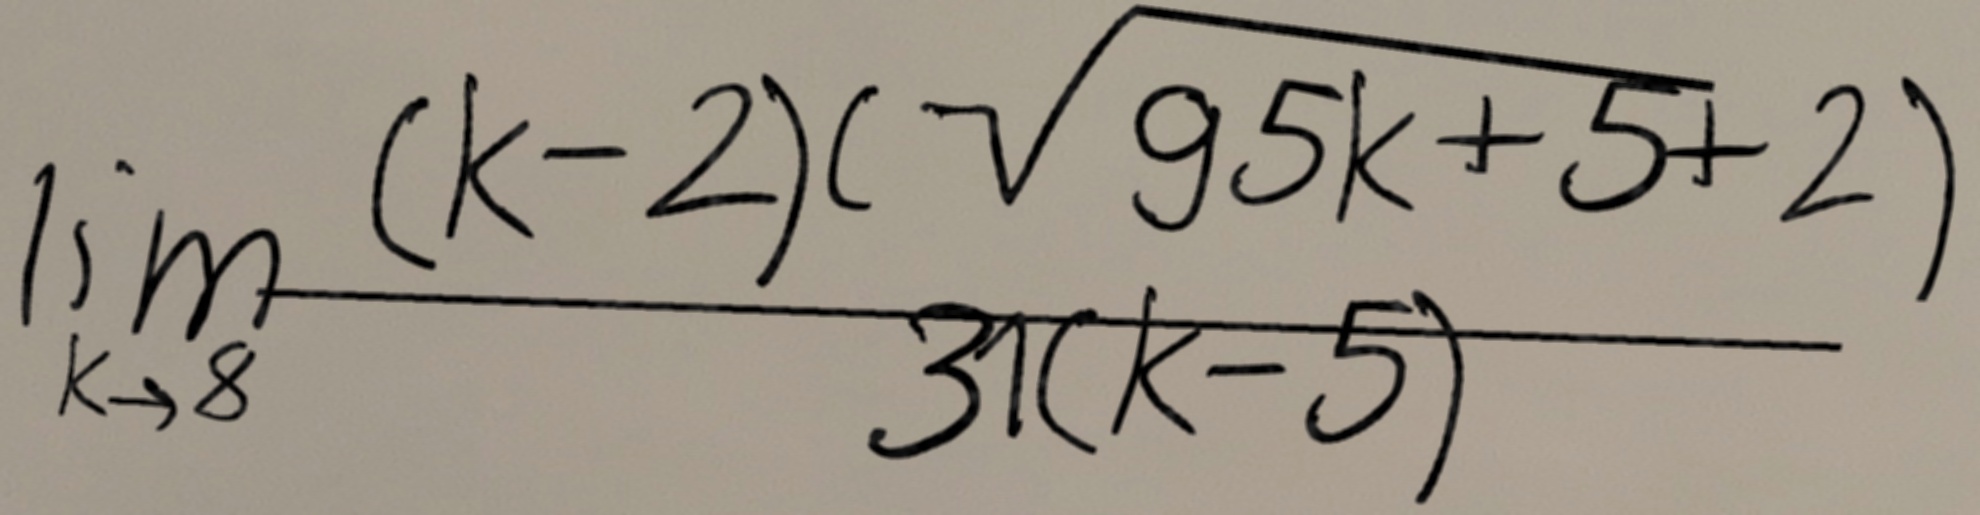 \lim_{k \to 8} \frac{(k-2)(\sqrt{95k+5}+2)}{31(k-5)}